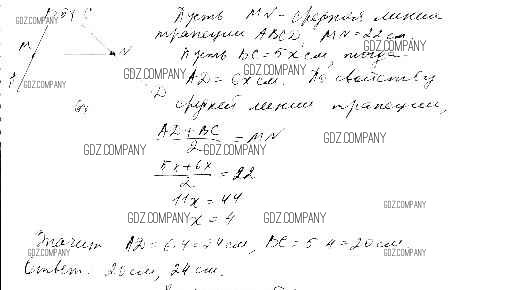 Пусть MN - средняя линия
трапеции ABCD, MN = 22 см.
M N
Пусть BC = 5x см, тогда
AD = 6x см. По свойству
средней линии трапеции,
AD + BC / 2 = MN
5x + 6x / 2 = 22
11x = 44
x = 4
Значит AD = 6·4 = 24 см, BC = 5·4 = 20 см.
Ответ. 20 см, 24 см.
GDZ.COMPANY
GDZ.COMPANY
GDZ.COMPANY
GDZ.COMPANY
GDZ.COMPANY
GDZ.COMPANY
GDZ.COMPANY
GDZ.COMPANY
GDZ.COMPANY
GDZ.COMPANY
GDZ.COMPANY
GDZ.COMPANY
GDZ.COMPANY